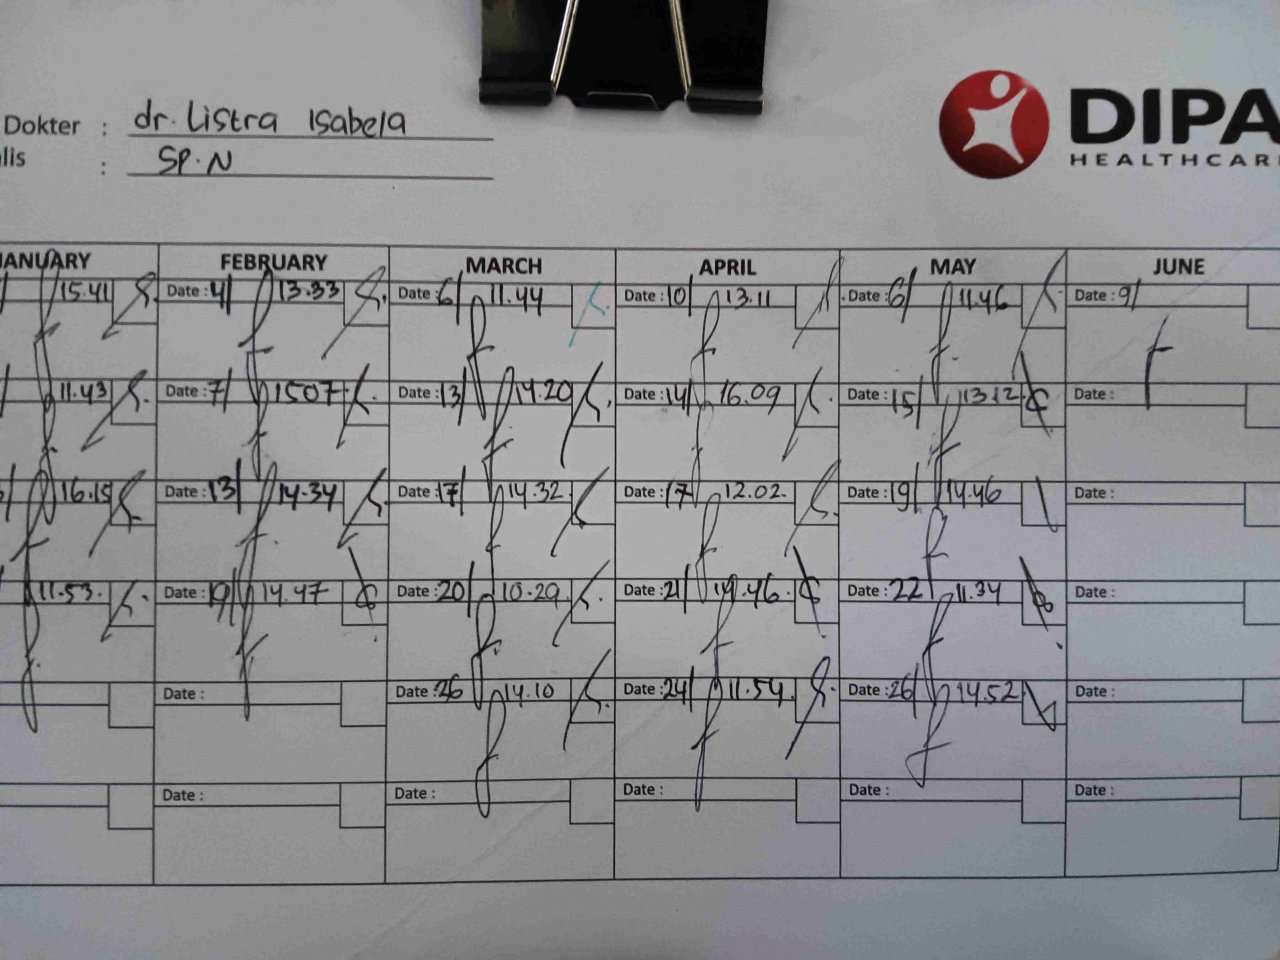 Dokter : dr. Listra Isabela
lis : SP.N
DIPA
HEALTHCAR
JANUARY FEBRUARY MARCH APRIL MAY JUNE
15.41 Date : 4/ 13.33 Date : 6/ 11.44 Date : 10/ 13.11 Date : 6/ 11.46 Date : 9/
11.43 Date : 7/ 1507 Date : 13/ 14.20 Date : 14/ 16.09 Date : 15/ 13.12 Date :
16.15 Date : 13/ 14.34 Date : 17/ 14.32 Date : 17/ 12.02 Date : 19/ 14.46 Date :
11.53 Date : 19/ 14.47 Date : 20/ 10.29 Date : 21/ Date : 22/ 11.34 Date :
Date : Date : 26 14.10 Date : 24/ 11.54 Date : 26/ 14.52 Date :
Date : Date : Date : Date : Date :